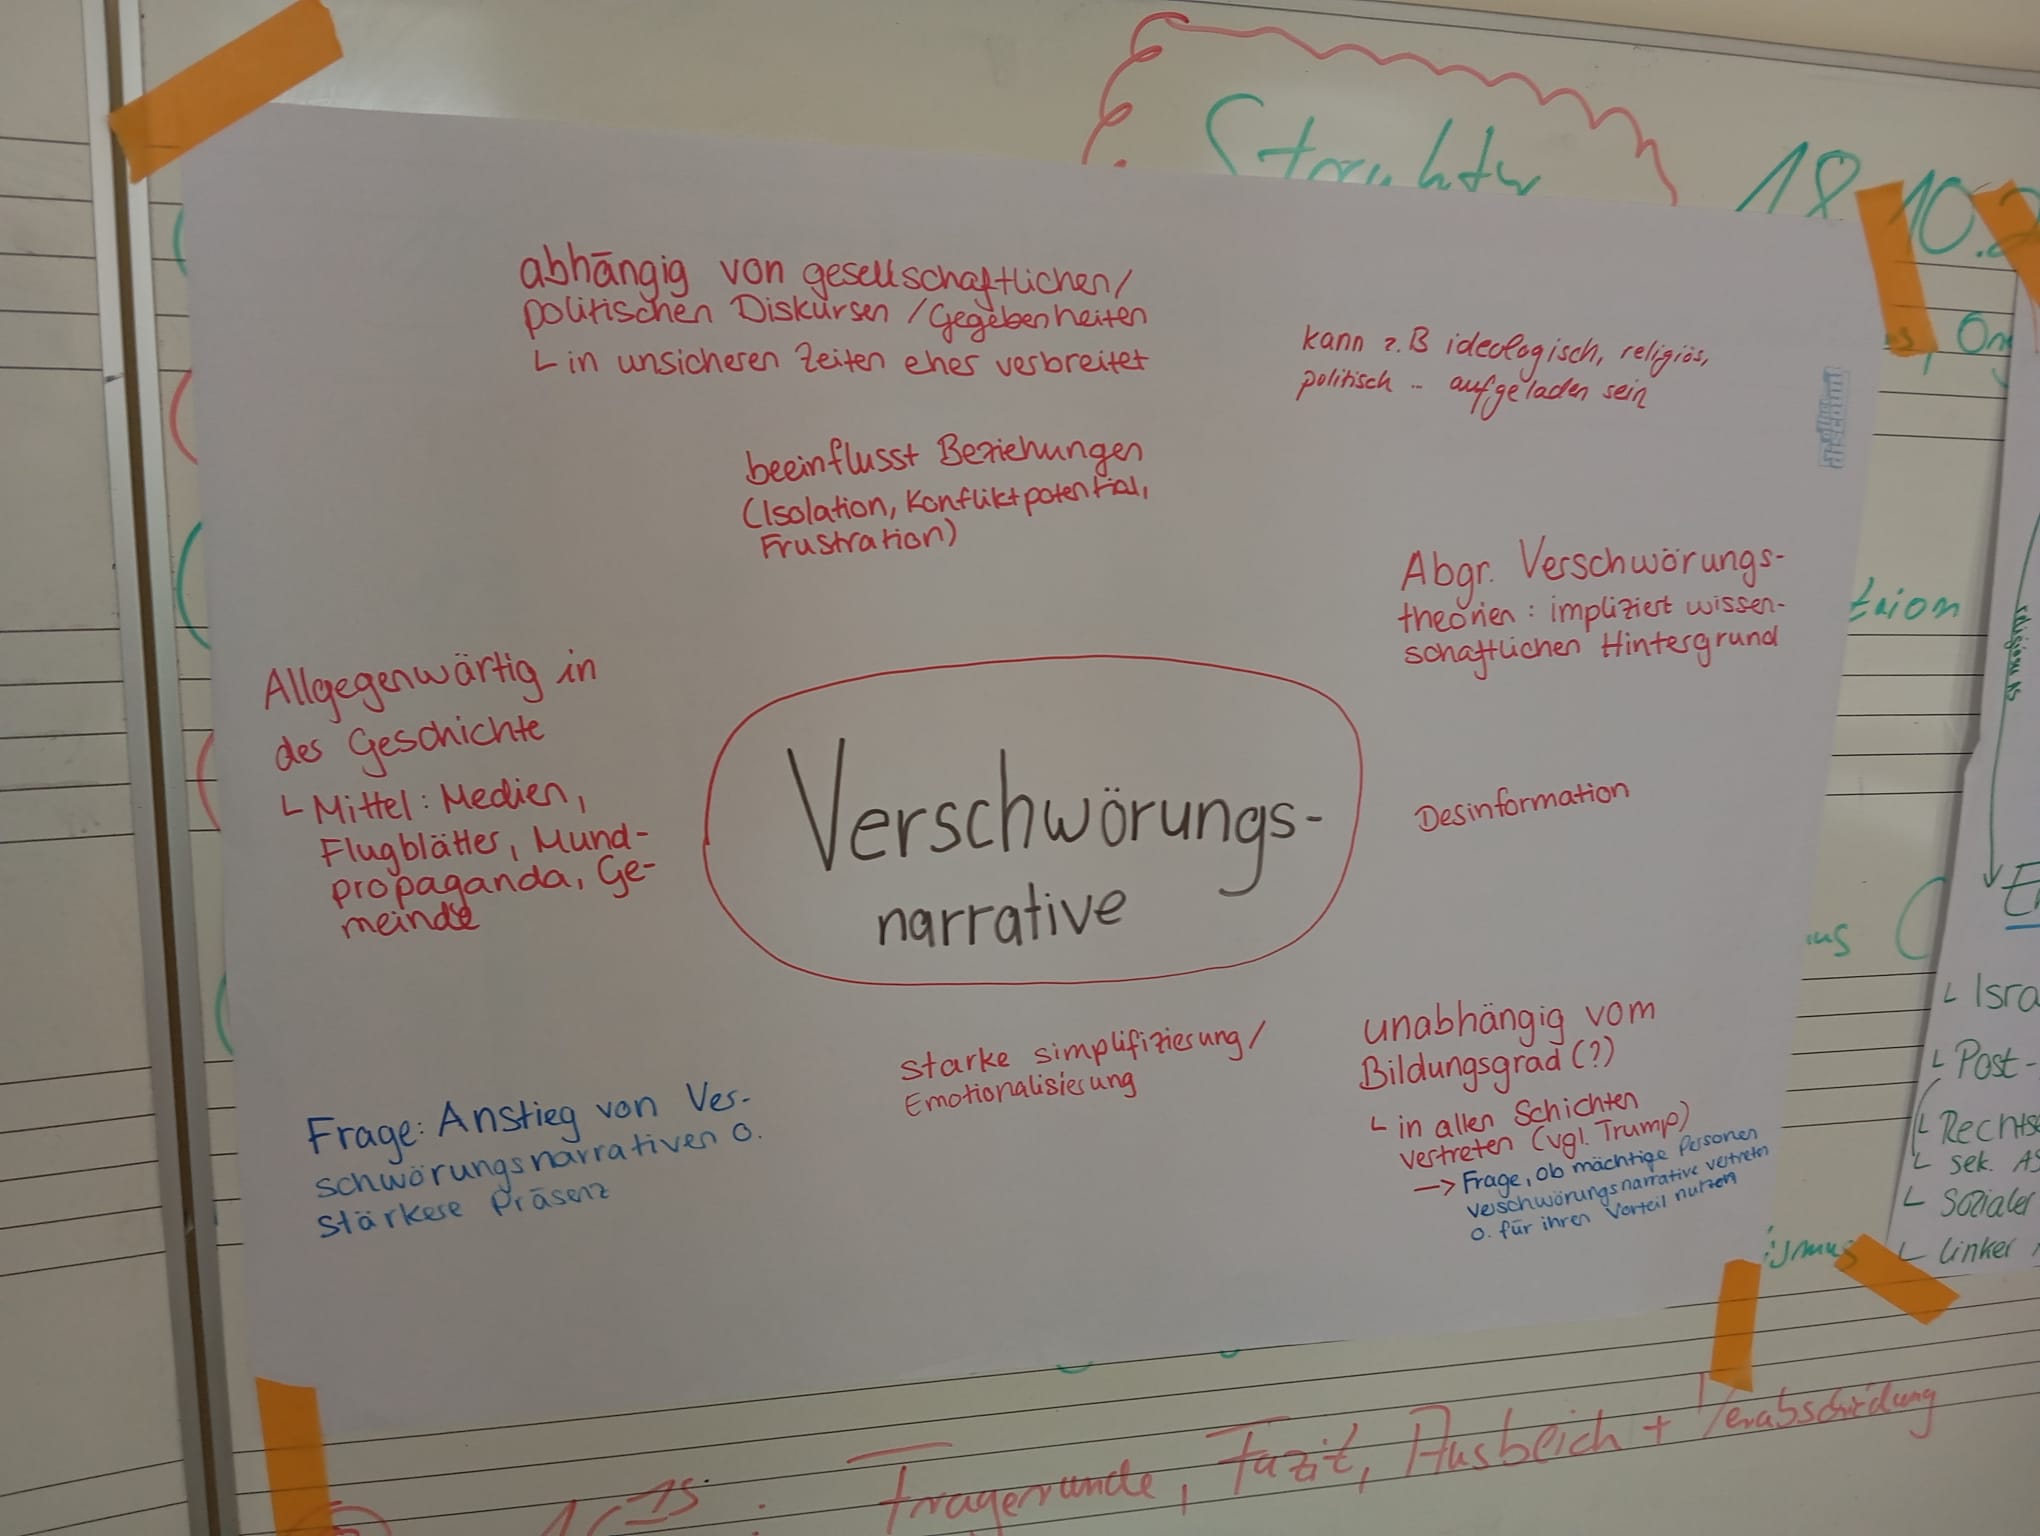 Struktur 18.10.2
abhängig von gesellschaftlichen/
politischen Diskursen / Gegebenheiten
↳ in unsicheren Zeiten eher verbreitet
kann z.B ideologisch, religiös,
politisch ... aufgeladen sein
beeinflusst Beziehungen
(Isolation, Konfliktpotential,
Frustration)
Abgr. Verschwörungs-
theorien: impliziert wissen-
schaftlichen Hintergrund
Allgegenwärtig in
der Geschichte
↳ Mittel: Medien,
Flugblätter, Mund-
propaganda, Ge-
meinde
Verschwörungs-
narrative
Desinformation
starke simplifizierung/
Emotionalisierung
unabhängig vom
Bildungsgrad (?)
↳ in allen Schichten
vertreten (vgl. Trump)
→ Frage, ob mächtige Personen
verschwörungsnarrative vertreten
o. für ihren Vorteil nutzen
Frage: Anstieg von Ver-
schwörungsnarrativen o.
stärkere Präsenz
religiöser AS
↳ Isra
↳ Post-
↳ Rechts
↳ sek. AS
↳ Sozialer
↳ linker
ismus
15: Fragerunde, Fazit, Ausblick + Verabschiedung